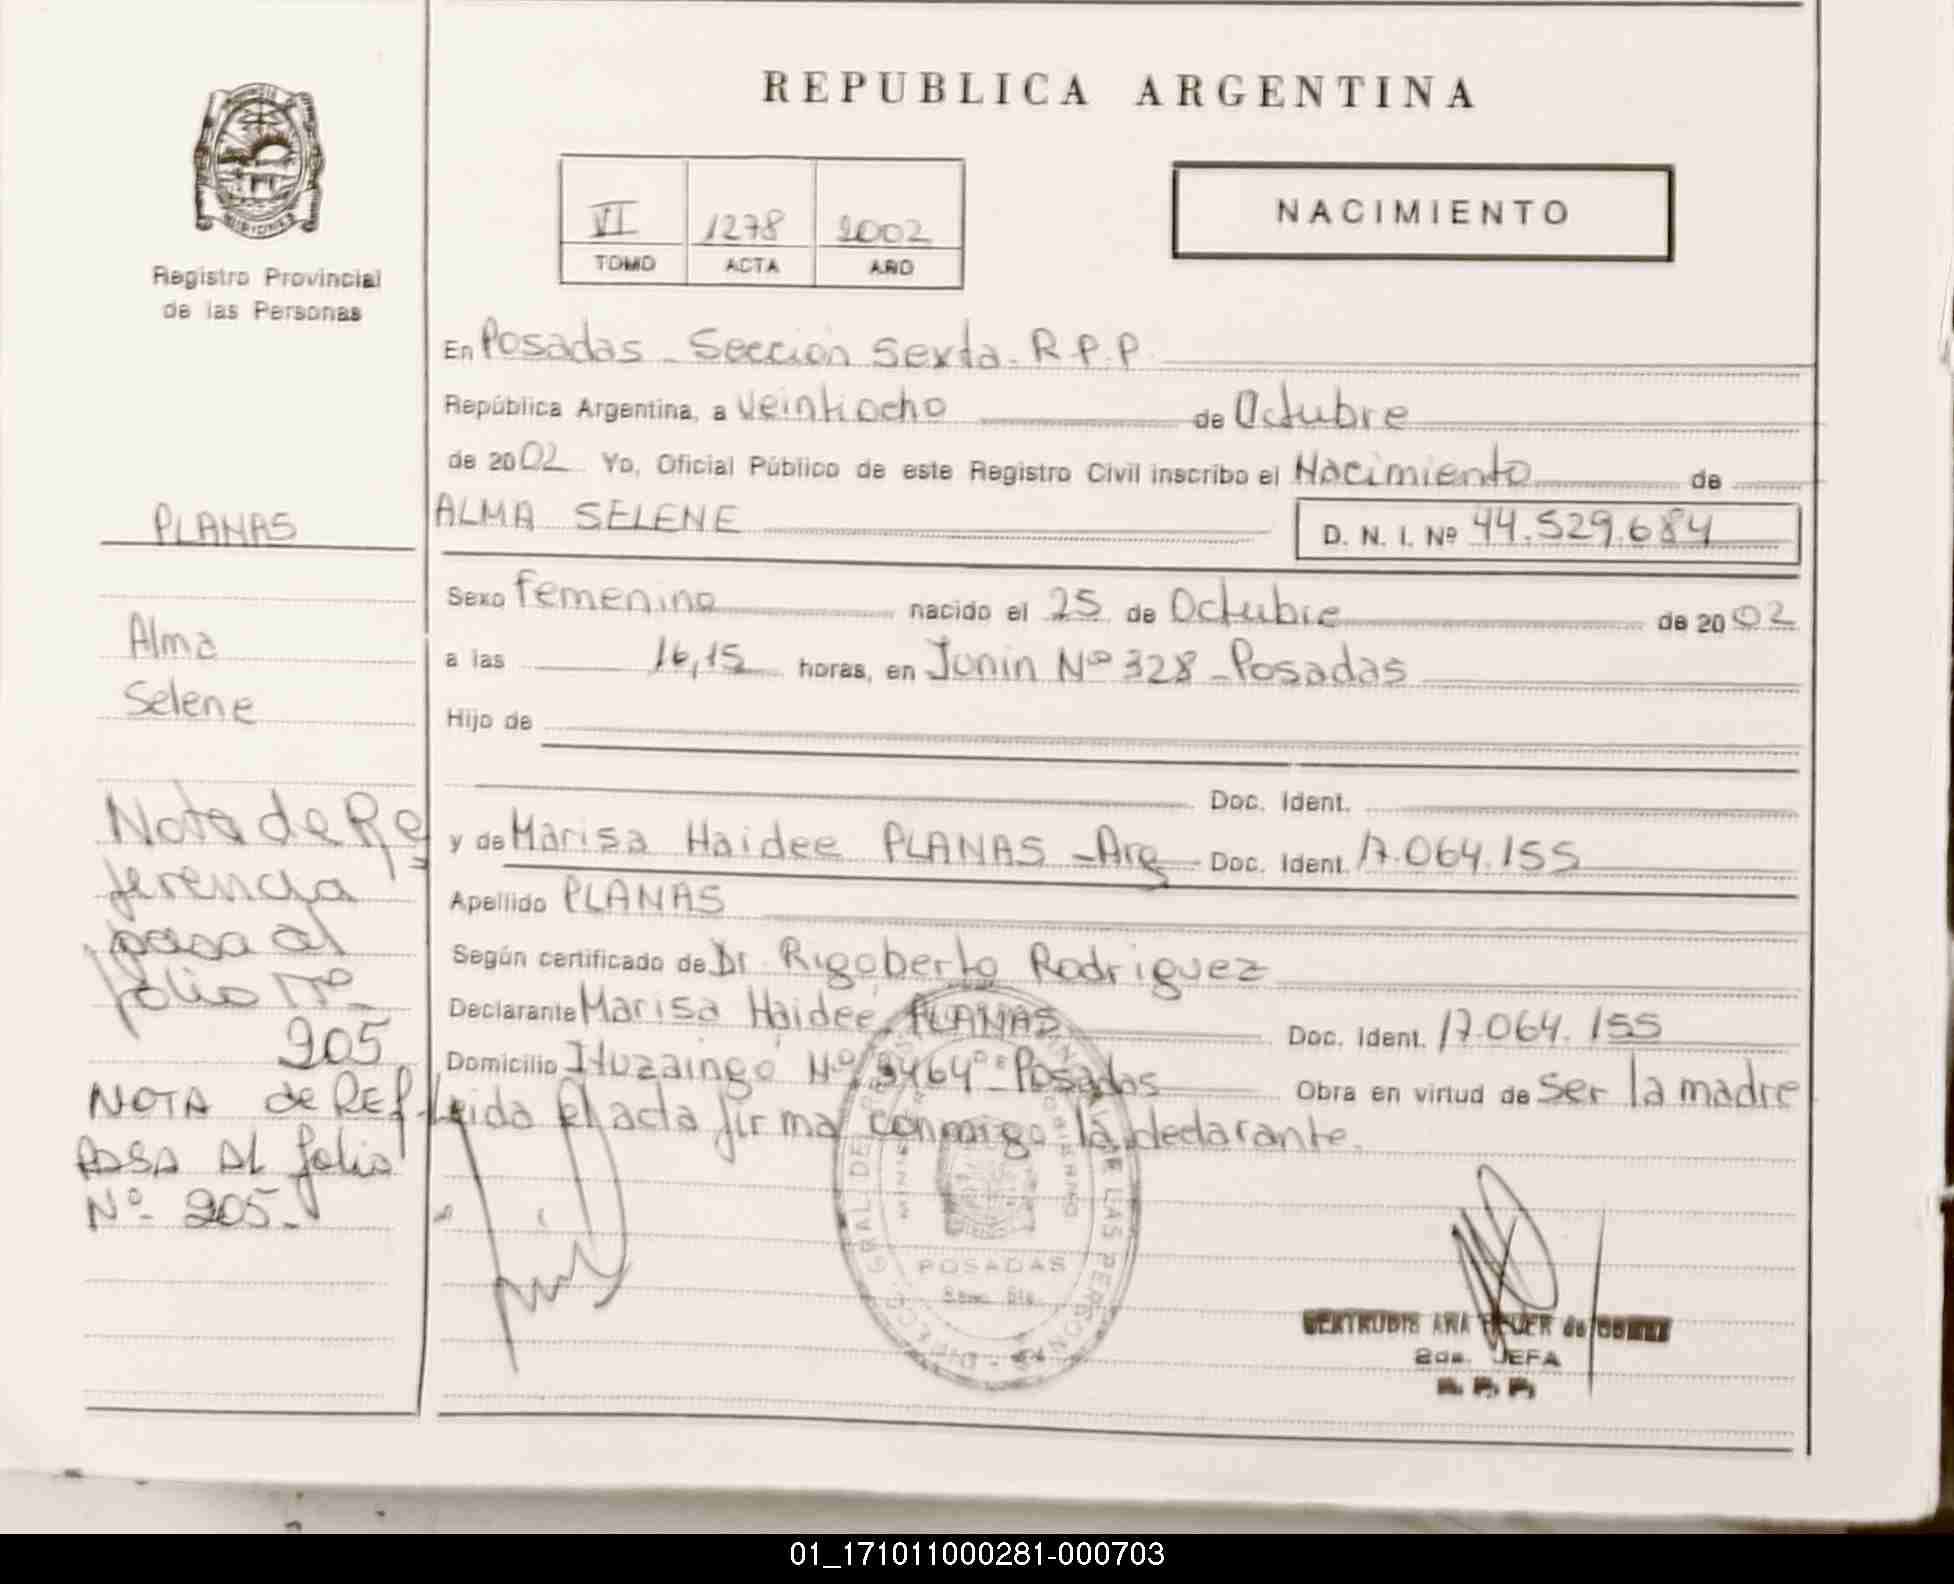 REPUBLICA ARGENTINA
NACIMIENTO
VI 1278 2002
TOMO ACTA AÑO
MISIONES
Registro Provincial
de las Personas
En Posadas - Sección Sexta - R.P.P.
República Argentina, a Veintiocho de Octubre
de 2002 Yo, Oficial Público de este Registro Civil inscribo el Nacimiento de
ALMA SELENE D. N. I. Nº 44.529.684
PLANAS
Alma
Selene
Sexo femenino nacido el 25 de Octubre de 2002
a las 16,15 horas, en Junin Nº 328 - Posadas
Hijo de
Doc. Ident.
y de Marisa Haidee PLANAS - Arg Doc. Ident. 17.064.155
Apellido PLANAS
Según certificado de Dr. Rigoberto Rodriguez
Declarante Marisa Haidee PLANAS Doc. Ident. 17.064.155
Domicilio Ituzaingó Nº 3464 - Posadas Obra en virtud de ser la madre
Leida el acta firma conmigo la declarante.
Nota de Re
ferencia
pasa al
folio Nº
205
NOTA de REF.
PASA AL folio
Nº 205.
POSADAS
GERTRUDIS ANA de GOMEZ
2da. JEFA
R.P.P.
01_171011000281-000703